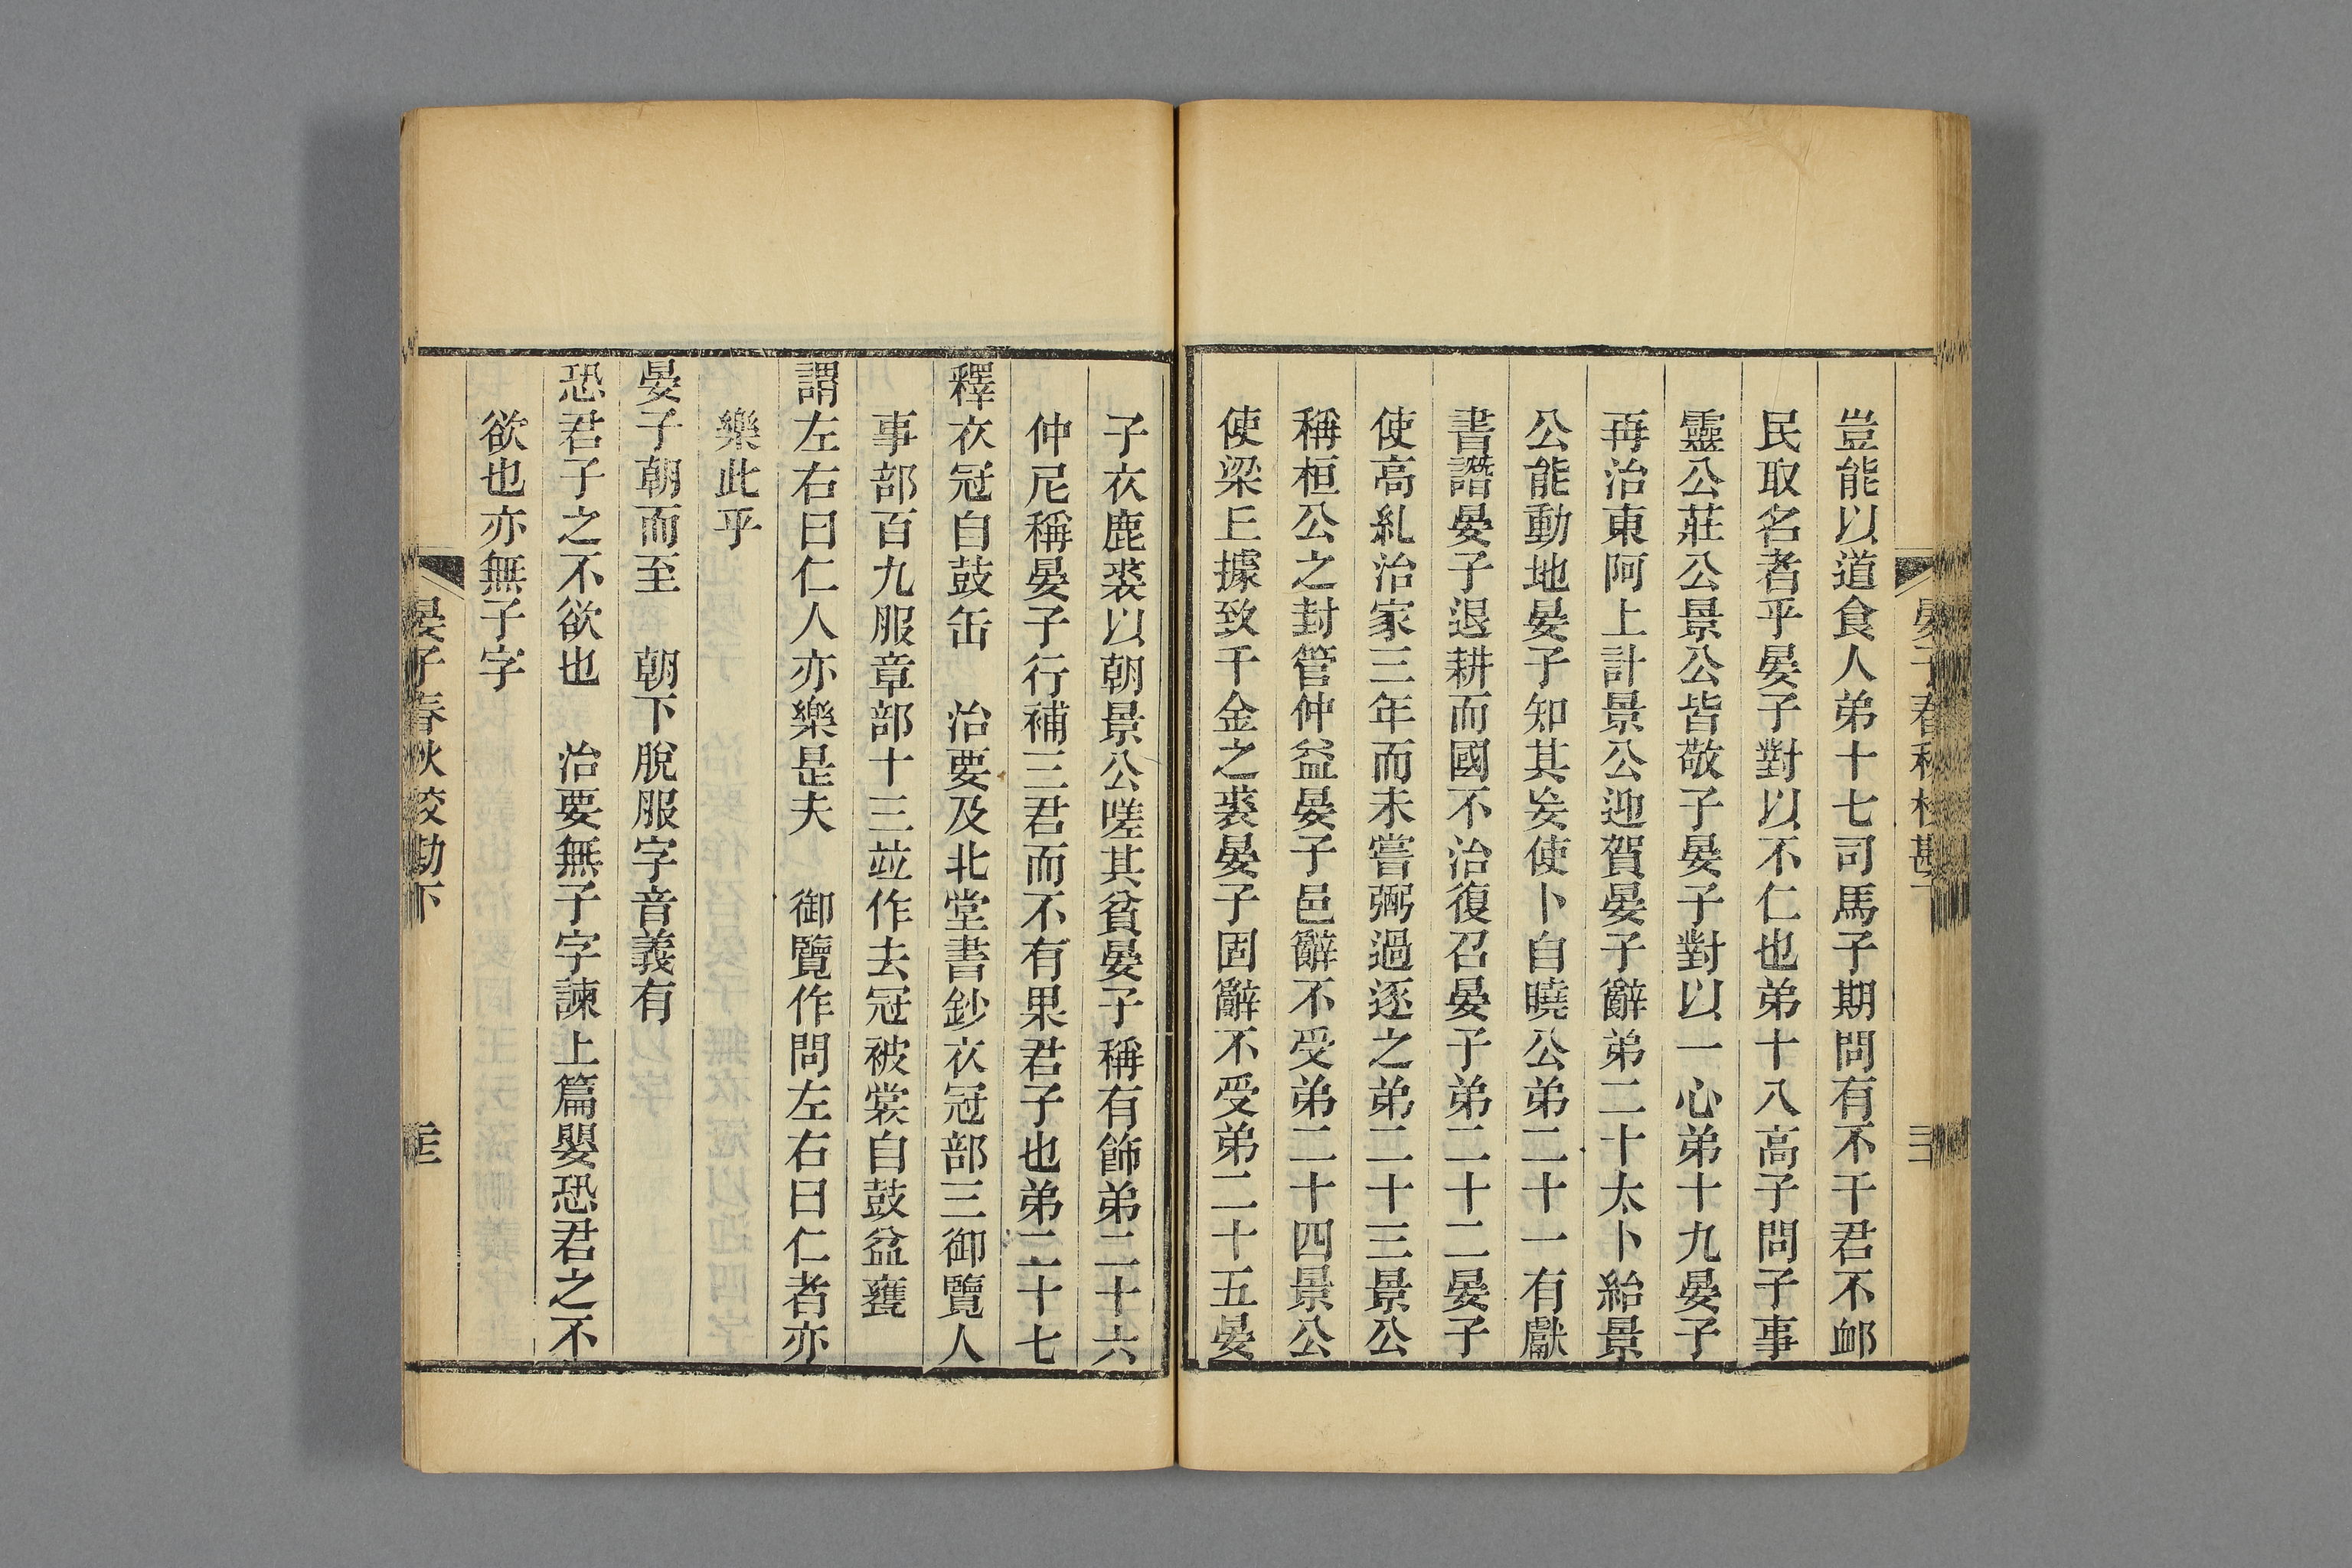 豈能以道食人弟十七司馬子期問有不干君不䘏
民取名者乎晏子對以不仁也弟十八高子問子事
靈公莊公景公皆敬子晏子對以一心弟十九晏子
再治東阿上計景公迎賀晏子辭弟二十太卜紿景
公能動地晏子知其妄使卜自曉公弟二十一有獻
書譖晏子退耕而國不治復召晏子弟二十二晏子
使高糺治家三年而未嘗弼過逐之弟二十三景公
稱桓公之封管仲益晏子邑辭不受弟二十四景公
使梁丘據致千金之裘晏子固辭不受弟二十五晏
子衣鹿裘以朝景公嗟其貧晏子稱有飾弟二十六
仲尼稱晏子行補三君而不有果君子也弟二十七
釋衣冠自鼓缶　治要及北堂書鈔衣冠部三御覽人
事部百九服章部十三竝作去冠被裳自鼓盆甕
謂左右曰仁人亦樂是夫　御覽作問左右曰仁者亦
樂此乎
晏子朝而至　朝下脫服字音義有
恐君子之不欲也　治要無子字諫上篇嬰恐君之不
欲也亦無子字
晏子春秋校勘下